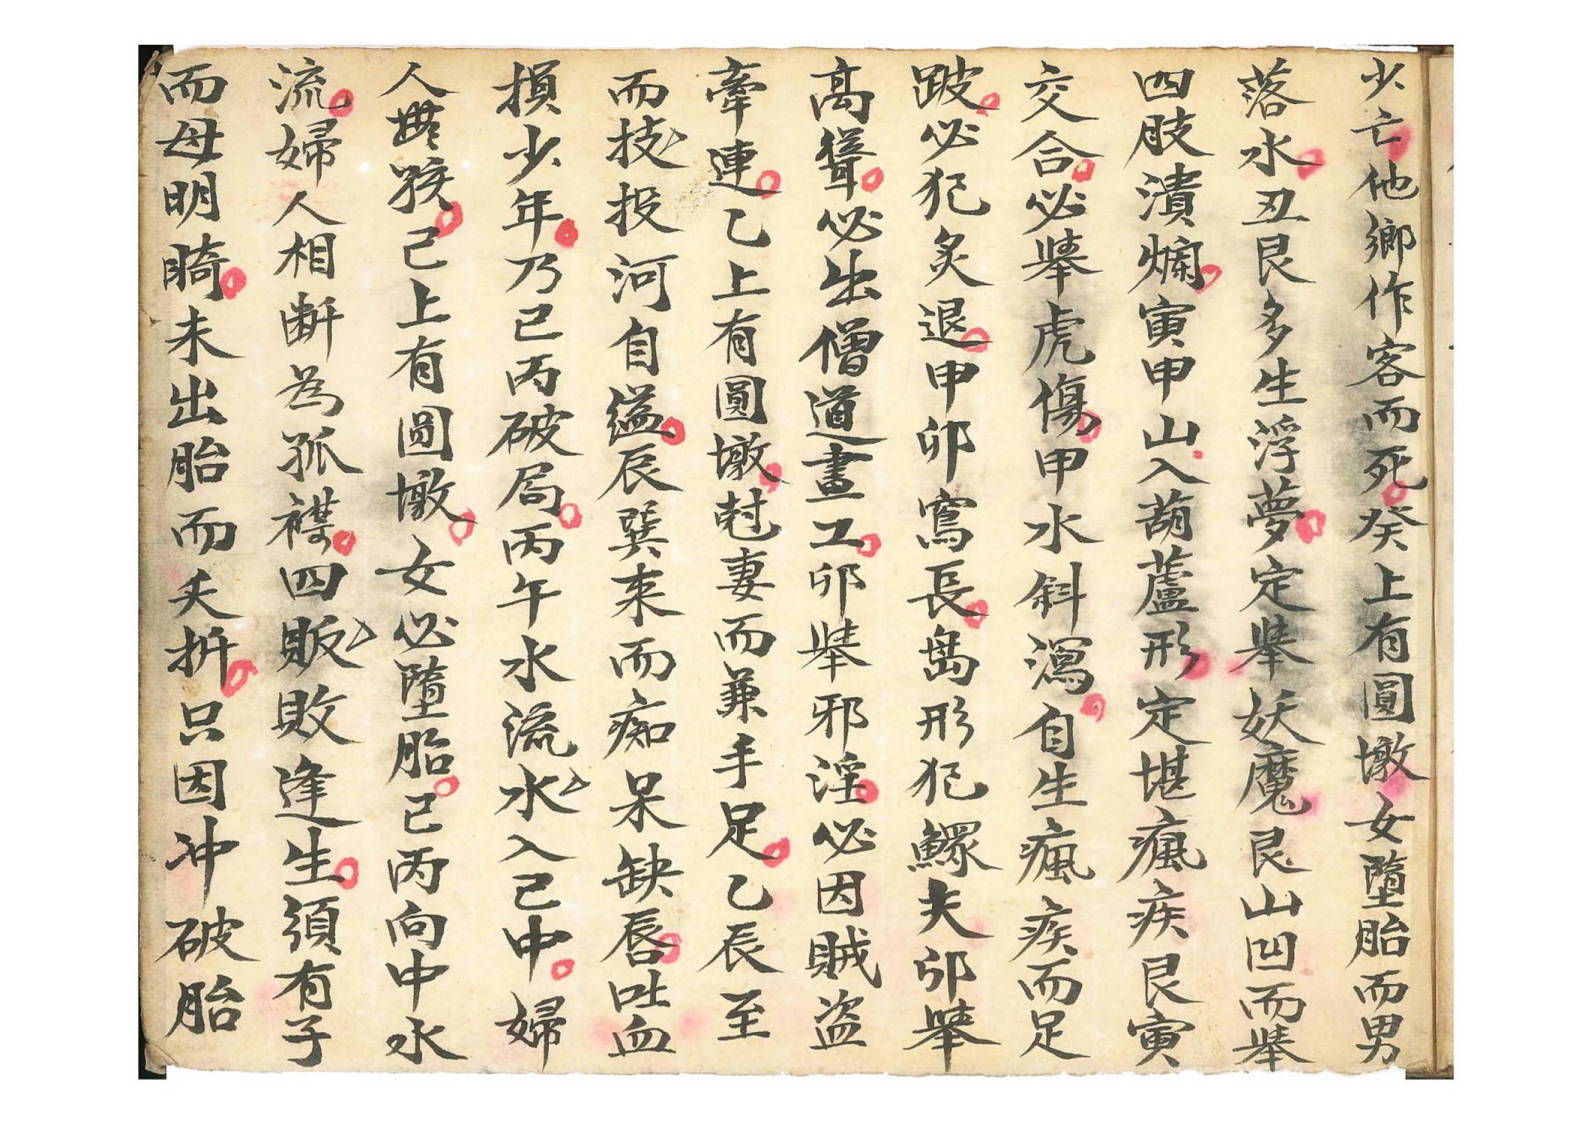 少亡他鄉作客而死癸上有圓墩女墮胎而男
落水丑艮多生浮夢定舉妖魔艮山凹而舉
四肢潰爛寅甲山入葫蘆形定堪瘋疾艮寅
交合必舉虎傷甲水斜瀉自生瘋疾而足
跛必犯炙退甲卯窵長島形犯鰥夫卯舉
高聳必出僧道畫工卯舉邪淫必因賊盗
牽連乙上有圓墩尅妻而兼手足乙辰至
而技投河自縊辰巽来而痴呆缺唇吐血
損少年乃巳丙破局丙午水流水入己中婦
人無孩己上有圓墩女必墮胎巳丙向中水
流婦人相断為孤襟四販敗逢生須有子
而母明騎未出胎而夭折只因冲破胎